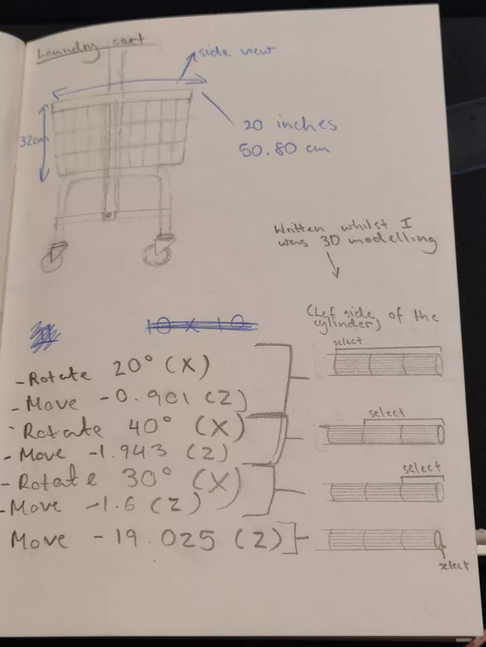 Laundry cart
side view
32cm
20 inches
50.80 cm
Written whilst I
was 3D modelling
10 x 10
(Lef side of the
cylinder)
select
- Rotate 20° (X)
- Move -0.901 (Z)
select
- Rotate 40° (X)
- Move -1.943 (Z)
select
- Rotate 30° (X)
- Move -1.6 (Z)
Move -19.025 (Z)
select